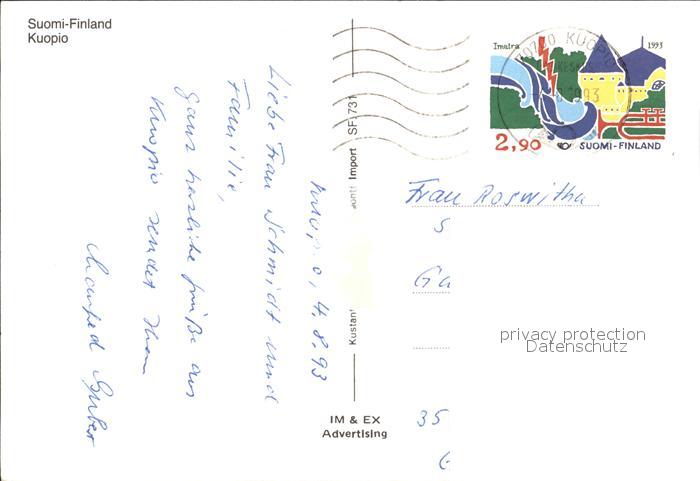 Suomi-Finland
Kuopio
Kuopio, 4.8.93
Liebe Frau Schmidt und
Familie,
ganz herzliche Grüße aus
Kuopio sendet Ihnen
Manfred Gruber
Import SF 731
Kustant
IM & EX
Advertising
Imatra
1993
KUOPIO
2,90
SUOMI-FINLAND
Frau Roswitha
S
Ga
35
G
privacy protection
Datenschutz